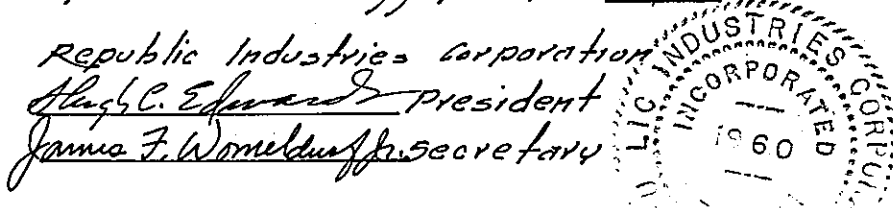 Republic Industries Corporation
Hugh C. Edwards President
James F. Womeldurf Jr. Secretary
LIC INDUSTRIES CORPO
INCORPORATED
1960